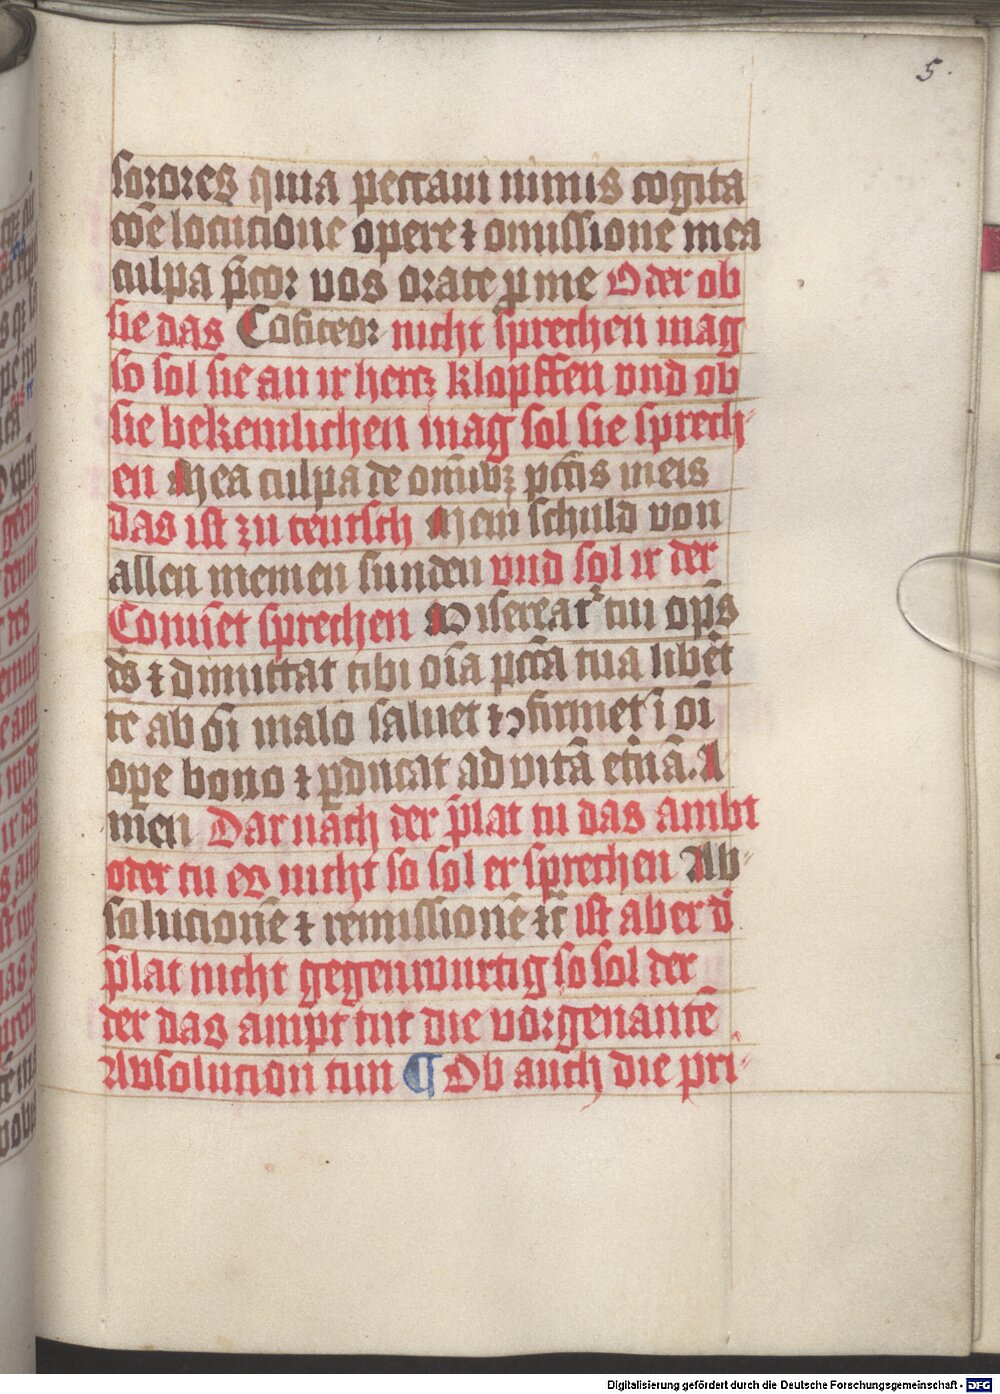 5.
sorores quia peccaui nimis cogita
cōe locucione opere ⁊ omissione mea
culpa p̄cor vos orate ꝑ me Oder ob
sie das Cōfiteor nicht sprechen mag
so sol sie an ir hertz klopffen vnd ob
sie bekemlichen mag sol sie sprech-
en Mea culpa de om̄ibꝫ pctīs meis
das ist zu teutsch Mein schuld von
allen meinen sunden vnd sol ir der
Conuēt sprechen Misereat᷑ tui op̄s
ds̄ ⁊ dimittat tibi oīa pctā tua libēt
te ab oī malo saluet ⁊ ꝯfirmet ī oī
ope bono ⁊ ꝑducat ad vitā etn̄ā. A
men Dar nach der p̄lat tu das ambt
oder tu es nicht so sol er sprechen Ab-
solucionē ⁊ remissionē ⁊c̄ ist aber d̄
p̄lat nicht gegenwurtig so sol der
der das ampt tut die vorgenantē
Absolucion tun ¶ Ob auch die pri-
Digitalisierung gefördert durch die Deutsche Forschungsgemeinschaft - DFG